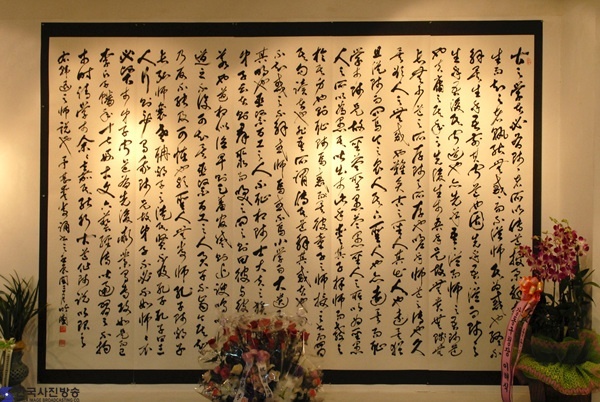 古之學者必有師師者所以傳道授業解惑也人非
生而知之者孰能無惑惑而不從師其爲惑也終不
解矣生乎吾前其聞道也固先乎吾吾從而師之
生乎吾後其聞道也亦先乎吾吾從而師之吾師道
也夫庸知其年之先後生於吾乎是故無貴無賤無
長無少道之所存師之所存也嗟乎師道之不傳也久
矣欲人之無惑也難矣古之聖人其出人也遠矣猶
且從師而問焉今之衆人其下聖人也亦遠矣而恥
學於師是故聖益聖愚益愚聖人之所以爲聖愚
人之所以爲愚其皆出於此乎愛其子擇師而教之
於其身也則恥師焉惑矣彼童子之師授之書而習
其句讀者也非吾所謂傳其道解其惑者也句讀之
不知惑之不解或師焉或不焉小學而大遺吾未見
其明也巫醫樂師百工之人不恥相師士大夫之族曰
師曰弟子云者則群聚而笑之問之則曰彼與彼年
相若也道相似也位卑則足羞官盛則近諛嗚呼師
道之不復可知矣巫醫樂師百工之人君子不齒今其智
乃反不能及其可怪也歟聖人無常師孔子師郯子
萇弘師襄老聃郯子之徒其賢不及孔子孔子曰三
人行則必有我師是故弟子不必不如師師不
必賢於弟子聞道有先後術業有專攻如是而已
李氏子蟠年十七好古文六藝經傳皆通習之不拘
於時請學於余余嘉其能行古道作師說以貽之
右韓退之師說也
한국사진방송